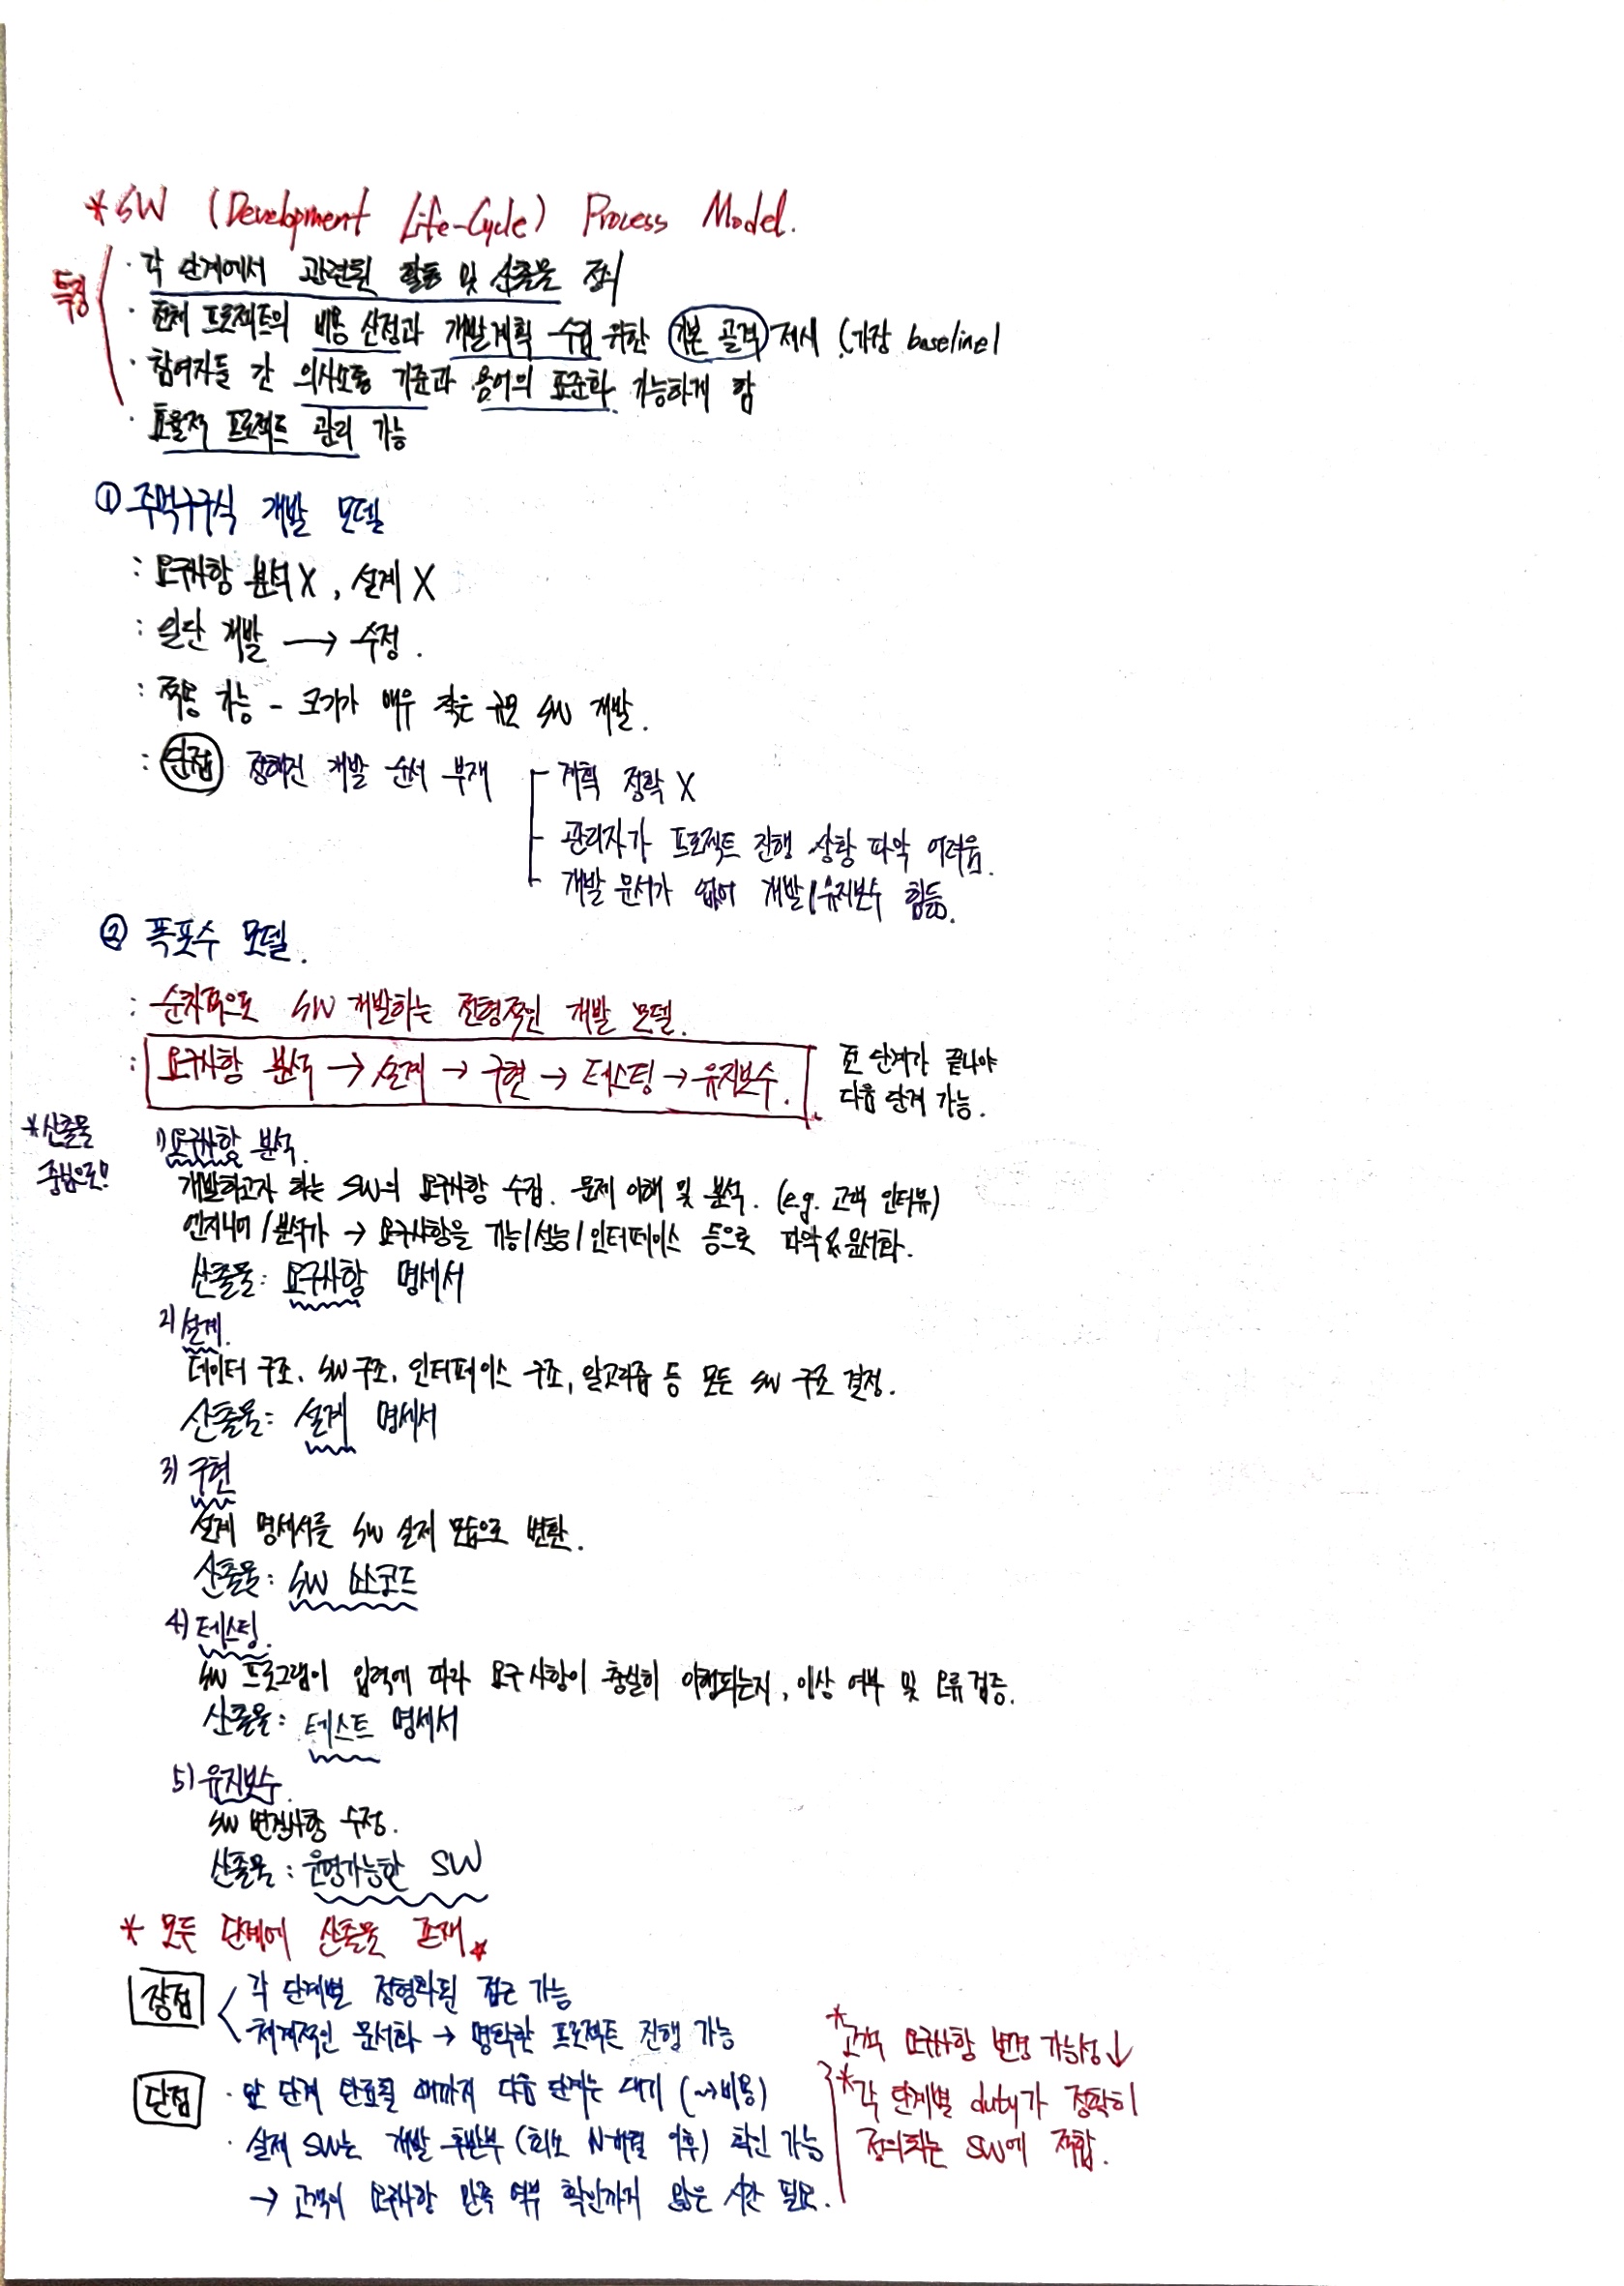 * SW (Development Life-Cycle) Process Model.
특징
· 각 단계에서 관련된 활동 및 산출물 정의
· 전체 프로젝트의 비용 산정과 개발계획 수립 위한 기본 골격 제시 (가장 baseline)
· 참여자들 간 의사소통 기준과 용어의 표준화 가능하게 함
· 효율적 프로젝트 관리 가능
① 주먹구구식 개발 모델
: 요구사항 분석 X, 설계 X
: 일단 개발 → 수정.
: 적용 가능 - 크기가 매우 작은 규모 SW 개발.
: 단점 정해진 개발 순서 부재
- 계획 정확 X
- 관리자가 프로젝트 진행 상황 파악 어려움.
- 개발 문서가 없어 개발/유지보수 힘듦.
② 폭포수 모델.
: 순차적으로 SW 개발하는 전형적인 개발 모델.
: 요구사항 분석 → 설계 → 구현 → 테스팅 → 유지보수.
전 단계가 끝나야
다음 단계 가능.
* 산출물
중심으로!
1) 요구사항 분석.
개발하고자 하는 SW의 요구사항 수집. 문제 이해 및 분석. (e.g. 고객 인터뷰)
엔지니어/분석가 → 요구사항을 기능/성능/인터페이스 등으로 파악 & 문서화.
산출물: 요구사항 명세서
2) 설계.
데이터 구조, SW 구조, 인터페이스 구조, 알고리즘 등 모든 SW 구조 결정.
산출물: 설계 명세서
3) 구현
설계 명세서를 SW 실제 모습으로 변환.
산출물: SW 소스코드
4) 테스팅.
SW 프로그램이 입력에 따라 요구사항이 충실히 이행되는지, 이상 여부 및 오류 검증.
산출물: 테스트 명세서
5) 유지보수.
SW 변경사항 수정.
산출물: 운영가능한 SW
* 모두 단계에 산출물 존재 ☆
장점
각 단계별 정형화된 접근 가능
체계적인 문서화 → 명확한 프로젝트 진행 가능
단점
· 앞 단계 완료될 때까지 다음 단계는 대기 (→비용)
· 실제 SW는 개발 후반부 (최소 N개월 이후) 확인 가능
→ 고객이 요구사항 만족 여부 확인까지 많은 시간 필요.
* 고객 요구사항 변경 가능성↓
* 각 단계별 duty가 정확히
정의되는 SW에 적합.